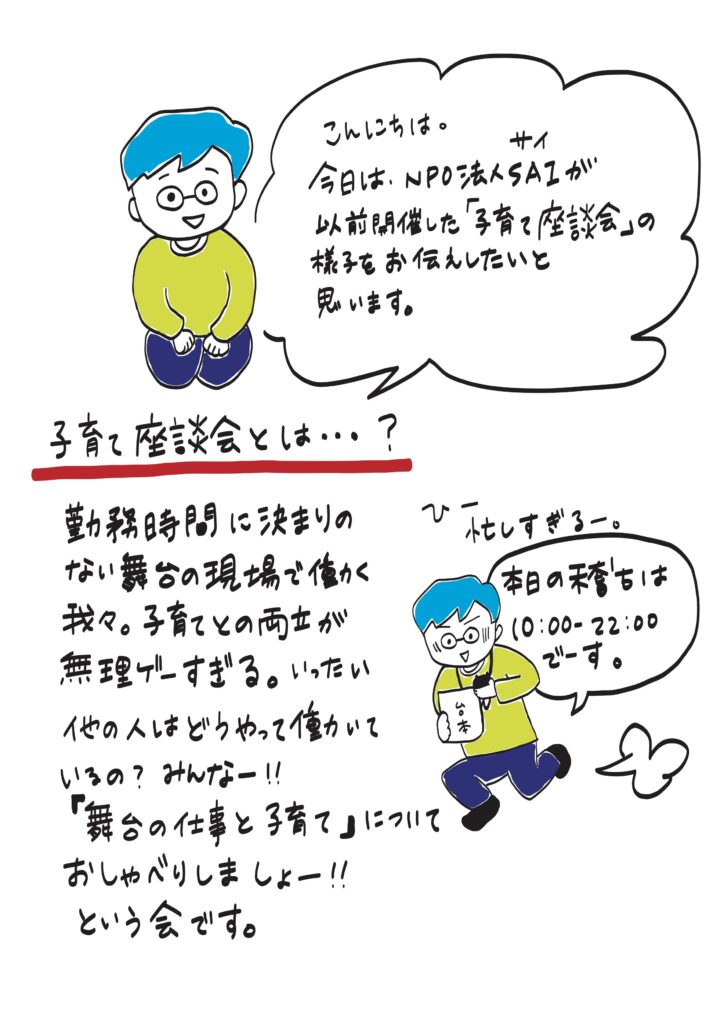 こんにちは。
サイ
今日は、NPO法人SAIが
以前開催した「子育て座談会」の
様子をお伝えしたいと
思います。
子育て座談会とは・・・?
勤務時間に決まりの
ない舞台の現場で働く
我々。子育てとの両立が
無理ゲーすぎる。いったい
他の人はどうやって働いて
いるの?みんなー!!
『舞台の仕事と子育て』について
おしゃべりしましょー!!
という会です。
ひー
忙しすぎるー。
本日の稽古は
10:00-22:00
でーす。
台本